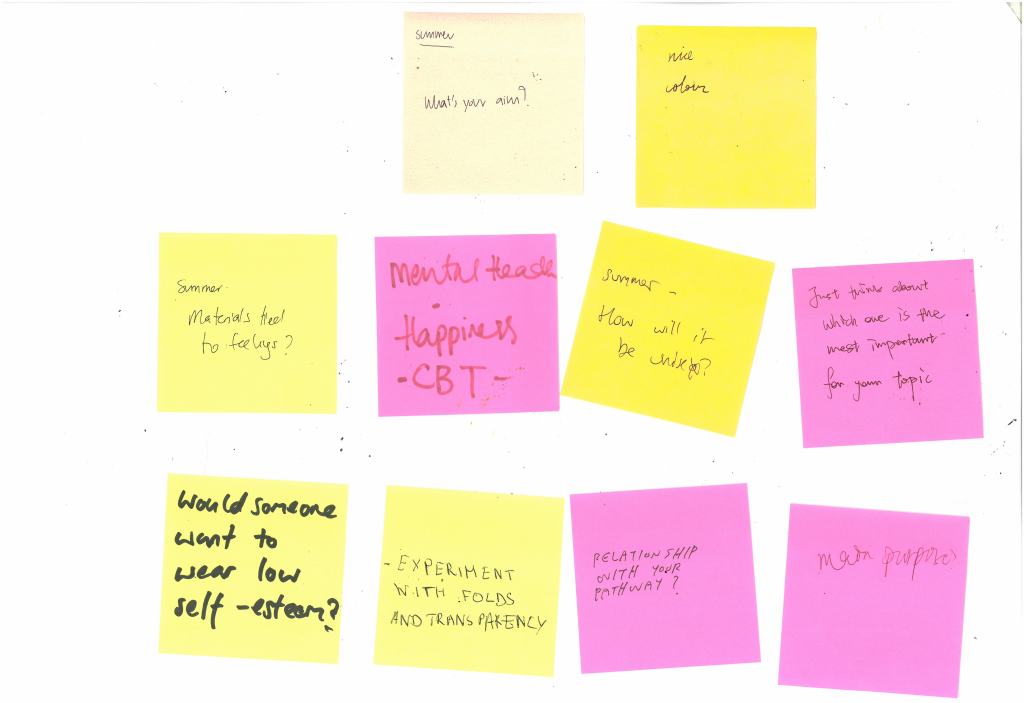 summer
What's your aim?
nice
colour
Summer-
Materials
to feelings?
Mental
-
Happiness
-CBT-
summer -
How will it
be
Just think about
which one is the
most important
for your topic
Would someone
want to
wear low
self-esteem?
- EXPERIMENT
WITH FOLDS
AND TRANSPARENCY
RELATIONSHIP
WITH YOUR
PATHWAY?
main purpose